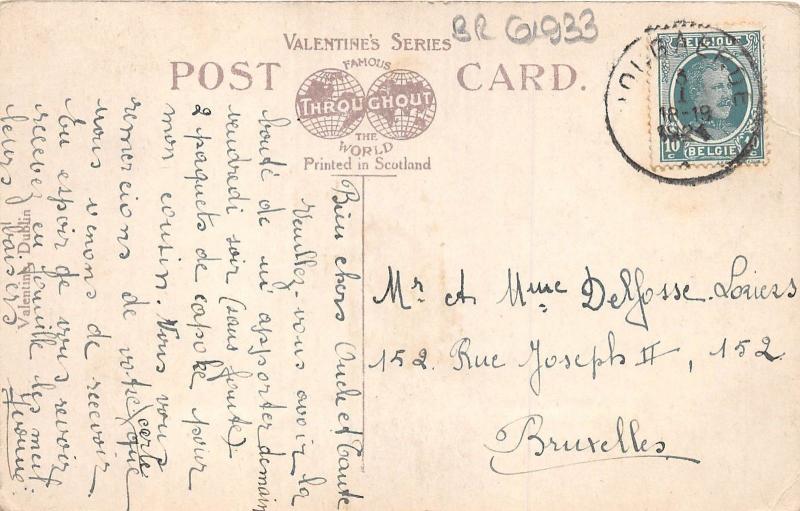 BR 61933
VALENTINE'S SERIES
POST CARD.
FAMOUS
THROUGHOUT
THE
WORLD
Printed in Scotland
BELGIQUE
18-19
10 c BELGIE 10 c
Valentine, Dublin
Bien chers Oncle et Tante
Veuillez-vous avoir la
bonté de m'apporter demain
vendredi soir (sans faute)
2 paquets de capoke pour
mon cousin. Vous vous
remercions de votre carte que
nous venons de recevoir
En espoir de vous revoir
recevez en famille les meil.
leurs baisers
Yvonne.
Mr et Mme Delfosse-Loriers
152, Rue Joseph II, 152
Bruxelles